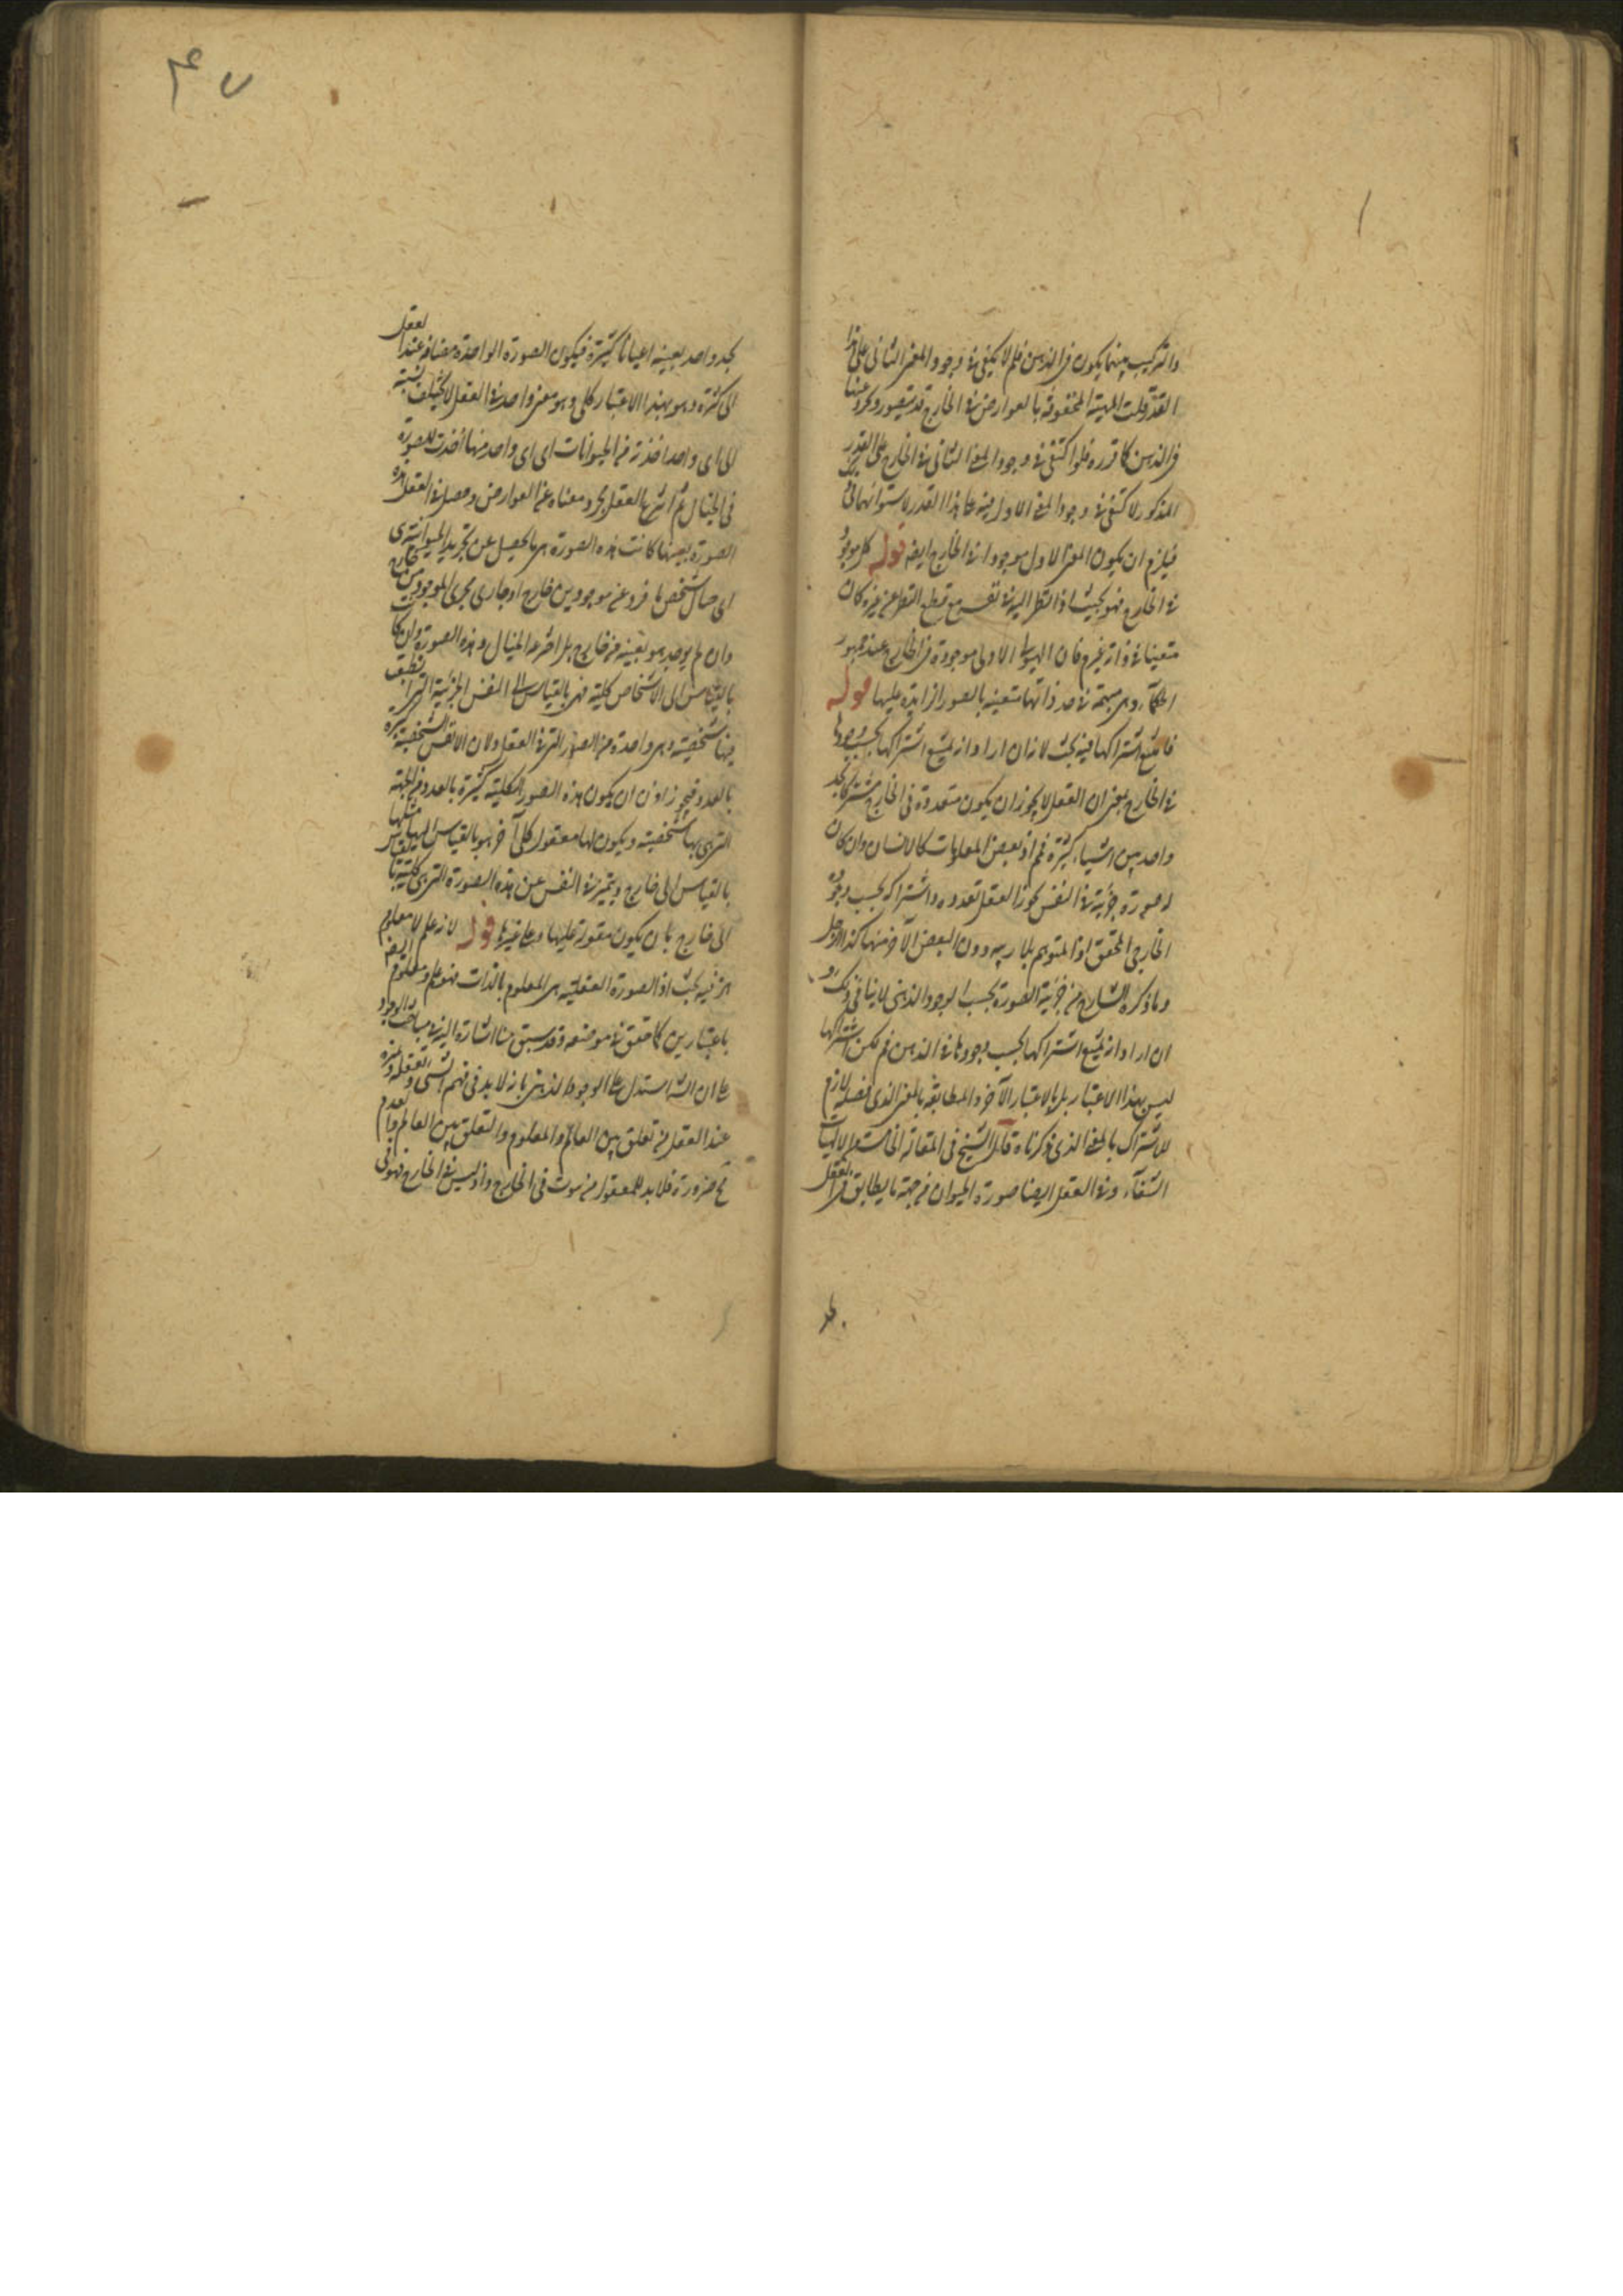 والتركيب بينهما يكون في الذهن فلم لا يكفي في وجود المعنى الثاني على هذا
القدر قلت المهية المحفوفة بالعوارض في الخارج قد يتصور مجردة عنها
في الذهن كما قرره فلو اكتفى في وجود المعنى الثاني في الخارج على القدر
المذكور لاكتفى في وجود المعنى الاول فيه على هذا القدر لاستوائهما في
فيلزم ان يكون المعنى الاول موجودا في الخارج ايضا قوله كل موجود
في الخارج فهو بحيث اذا نظر اليه في نفسه مع قطع النظر عن غيره كان
متعينا في ذاته غير فان الهيولى الاولى موجودة في الخارج عند جمهور
الحكماء وهي مبهمة في حد ذاتها متعينة بالصور الزايدة عليها قوله
فامتنع اشتراكها فيه بحث لانه ان اراد انه يمتنع اشتراكها بحسب وجودها
في الخارج بمعنى ان العقل لا يجوز ان يكون متعددة في الخارج مشتركا بحد
واحد بين اشياء كثيرة فمم اذ بعض المعلومات كالانسان وان كان
له صورة جزئية في النفس يجوز العقل تعدده واشتراكه بحسب وجوده
الخارجي المحقق او المتوهم بلا ريبه دون البعض الآخر منها كذا الرجل
وما ذكره الشارح من جزئية الصورة بحسب الوجود الذهني لا ينافي ذلك و
ان اراد انه يمتنع اشتراكها بحسب وجودها في الذهن فمم لكن اشتراكها
ليس بهذا الاعتبار بل بالاعتبار الآخر والمطابقة بالمعنى الذي فصله لازم
للاشتراك بالمعنى الذي ذكرناه قال الشيخ في المقالة الخامسة من الالهيات
الشفاء وفي العقل ايضا صورة الحيوان من جهة ما يطابق في العقل
بحد واحد بعينه اعيانا كثيرة فيكون الصورة الواحدة مضافة عند العقل
الى كثرة وهو بهذا الاعتبار كلي وهو معنى واحد في العقل لا يختلف نسبته
الى اي واحد اخذته من الحيوانات اي اي واحد منها احضرت صورته
في الخيال ثم انتزع العقل مجرد معناه عن العوارض وحصل في العقل هذه
الصورة بعينها كانت هذه الصورة هي ما يحصل عن تجريد الحيوانية
اي خيال شخصي ماخوذ عن موجود من خارج او جار مجرى الموجود من خارج
وان لم يوجد هو بعينه من خارج بل اخترعه الخيال وهذه الصورة وان كانت
بالقياس الى الاشخاص كلية فهي بالقياس الى النفس الجزئية التي انطبعت
فيها شخصية وهي واحدة من الصور التي في العقل ولان الانفس الشخصية كثيرة
بالعدد فيجوز اذن ان يكون هذه الصور الكلية كثيرة بالعدد من الجهة
التي هي بها شخصية ويكون لها معقول كلي آخر هو بالقياس اليها مثلها
بالقياس الى خارج ويتميز في النفس عن هذه الصورة التي هي كلية بالقياس
الى خارج بان يكون مقولة عليها وعلى غيرها قوله لانه علم لا معلوم
فيه بحث اذ الصورة العقلية هي المعلوم بالذات فهو علم ومعلوم
باعتبارين كما حقق في موضعه وقد سبق منا اشارة اليه في مباحث الوجود
على ان الش استدل على الوجود الذهني بانه لا بد في فهم الشيء وتعقله وتميزه
عند العقل من تعلق بين العالم والمعلوم والتعلق بين العالم والعدم
مح ضرورة فلا بد للمعقول من ثبوت في الخارج واذ ليس في الخارج فهو في